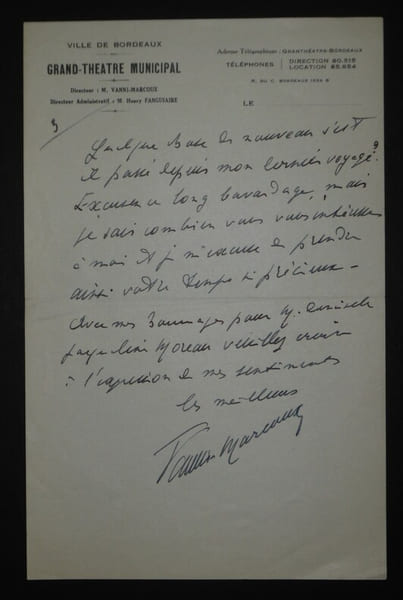 VILLE DE BORDEAUX
GRAND-THEATRE MUNICIPAL
Directeur : M. VANNI-MARCOUX
Directeur Administratif : M. Henry FANGUIAIRE
Adresse Télégraphique : GRANTHÉATRE-BORDEAUX
TÉLÉPHONES
DIRECTION 80.515
LOCATION 85.654
R. DU C. BORDEAUX 1234 B
LE
3
Quelque chose de nouveau s'est
il passé depuis mon dernier voyage ?
Excusez ce long bavardage, mais
je sais combien vous vous intéressez
à moi et je m'excuse de prendre
ainsi votre temps si précieux –
Avec mes hommages pour
Jacqueline Moreau veuillez croire
à l'expression de mes sentiments
les meilleurs
Vanni Marcoux